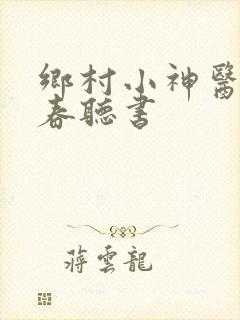 鄉村小神醫
春聽書
蔣雲龍